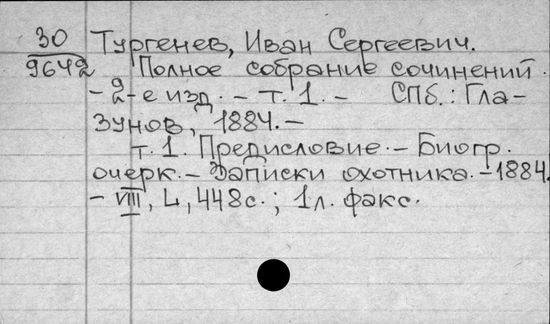 30 Тургенев, Иван Сергеевич.
9642 Полное собрание сочинений.
- 2-е изд. - т. 1. - СПб.: Гла-
зунов, 1884. -
т. 1. Предисловие. - Биогр.
очерк. - Записки охотника. - 1884.
- VIII, L, 448с.; 1л. факс.